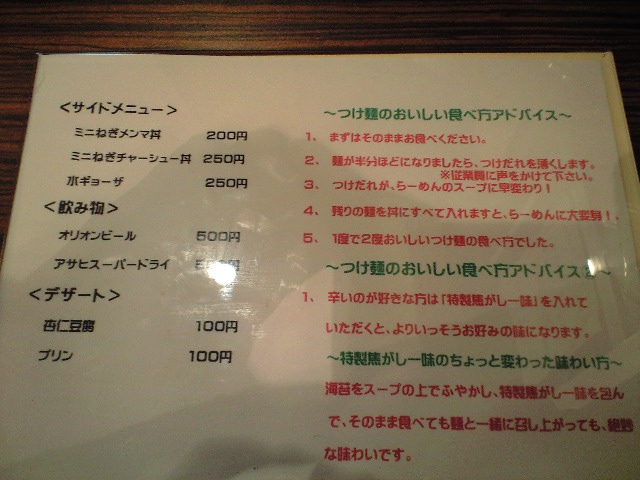 <サイドメニュー>
ミニねぎメンマ丼 200円
ミニねぎチャーシュー丼 250円
水ギョーザ 250円
<飲み物>
オリオンビール 500円
アサヒスーパードライ
<デザート>
杏仁豆腐 100円
プリン 100円
～つけ麺のおいしい食べ方アドバイス～
1、 まずはそのままお食べください。
2、 麺が半分ほどになりましたら、つけだれを薄くします。
※従業員に声をかけて下さい。
3、 つけだれが、らーめんのスープに早変わり!
4、 残りの麺を丼にすべて入れますと、らーめんに大変身!。
5、 1度で2度おいしいつけ麺の食べ方でした。
～つけ麺のおいしい食べ方アドバイス②～
1、 辛いのが好きな方は「特製焦がし一味」を入れて
いただくと、よりいっそうお好みの味になります。
～特製焦がし一味のちょっと変わった味わい方～
海苔をスープの上でふやかし、特製焦がし一味を包ん
で、そのまま食べても麺と一緒に召し上がっても、絶妙
な味わいです。